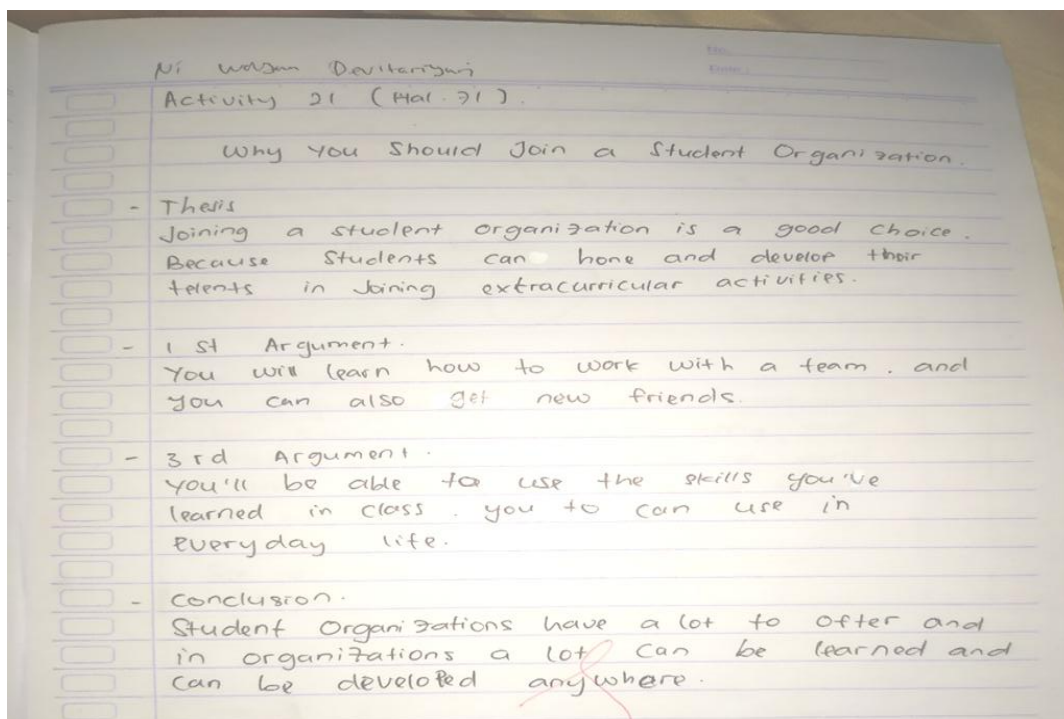 Ni Wayan Devitariyani
Activity 21 (Hal. 71).
Why You Should Join a Student Organization.
- Thesis
Joining a student organization is a good choice.
Because Students can hone and develop their
telents in Joining extracurricular activities.
- 1 st Argument.
You will learn how to work with a team. and
you can also get new friends.
- 3 rd Argument.
You'll be able to use the skills you've
learned in class. you to can use in
everyday life.
- Conclusion.
Student Organizations have a lot to offer and
in organizations a lot can be learned and
can be developed anywhere.